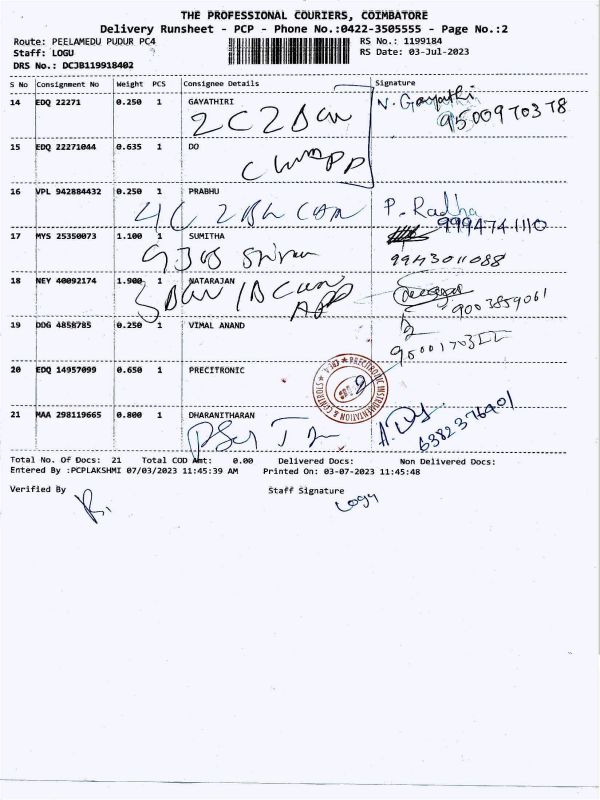 THE PROFESSIONAL COURIERS, COIMBATORE
Delivery Runsheet - PCP - Phone No.:0422-3505555 - Page No.:2
Route: PEELAMEDU PUDUR PC4 RS No.: 1199184
Staff: LOGU RS Date: 03-Jul-2023
DRS No.: DCJB119918402
S No Consignment No Weight PCS Consignee Details Signature
14 EDQ 22271 0.250 1 GAYATHIRI N. Gayathi
9500970378
15 EDQ 22271044 0.635 1 DO
16 VPL 942884432 0.250 1 PRABHU P. Radha
4C 9994741110
17 MYS 25350073 1.100 1 SUMITHA
9943011088
18 NEY 40092174 1.900 1 NATARAJAN
9003859061
19 DDG 4858785 0.250 1 VIMAL ANAND
20 EDQ 14957099 0.650 1 PRECITRONIC
PRECITRONIC INSTRUMENTATION & CONTROLS
21 MAA 298119665 0.800 1 DHARANITHARAN
6382376401
Total No. Of Docs: 21 Total COD Amt: 0.00 Delivered Docs: Non Delivered Docs:
Entered By :PCPLAKSHMI 07/03/2023 11:45:39 AM Printed On: 03-07-2023 11:45:48
Verified By Staff Signature
Logu